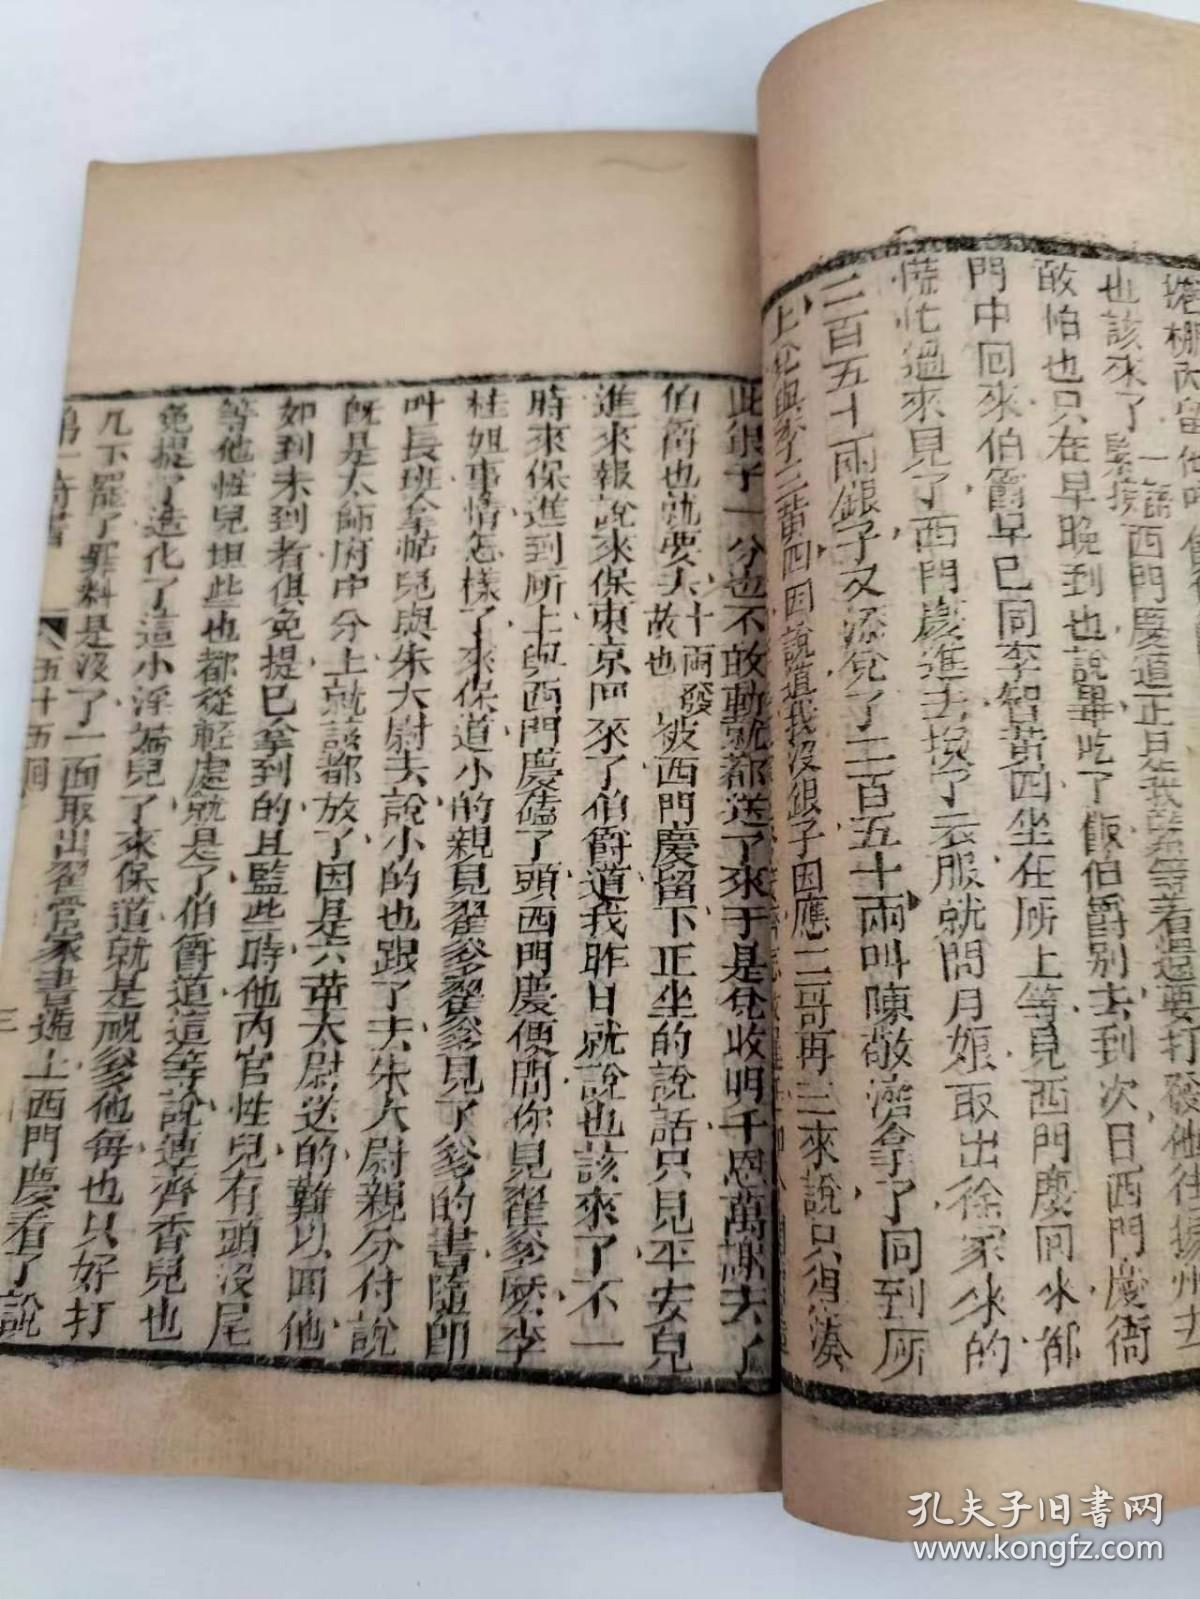 西門慶道正是我
也該來了
敢怕也只在早晚到也說畢吃了飯伯爵別去到次日西門慶衙
門中回來伯爵早巳同李智黃四坐在所上等見西門慶回來都
慌忙過來見了西門慶進去換了衣服就問月娘取出徐家來的
二百五十兩銀子又添兌了二百五十兩叫陳敬濟拿了同到所
上兌與李三黃四因說道我沒銀子因應二哥再三來說只得湊
此銀子一分也不敢動就都送了來于是兌收明千恩萬謝去了
伯爵也就要去十兩發故也被西門慶留下正坐的說話只見平安兒
進來報說來保東京回來了伯爵道我昨日就說也該來了不一
時來保進到所上與西門慶磕了頭西門慶便問你見翟爹麽李
桂姐事情怎樣了來保道小的親見翟爹翟爹見了爹的書隨即
叫長班拿帖兒與朱太尉去說小的也跟了去朱太尉親分付說
既是太師府中分上就該都放了因是六黃太尉送的難以回他
如到未到者俱免提已拿到的且監些時他內官性兒有頭沒尾
等他性兒坦些也都從輕處就是了伯爵道這等說連齊香兒也
免提了造化了這小淫婦兒了來保道就是祝爹他每也只好打
几下罷了罪料是沒了一面取出翟管家書遞上西門慶看了說
第一奇書 五十五囘 三
孔夫子旧书网
www.kongfz.com